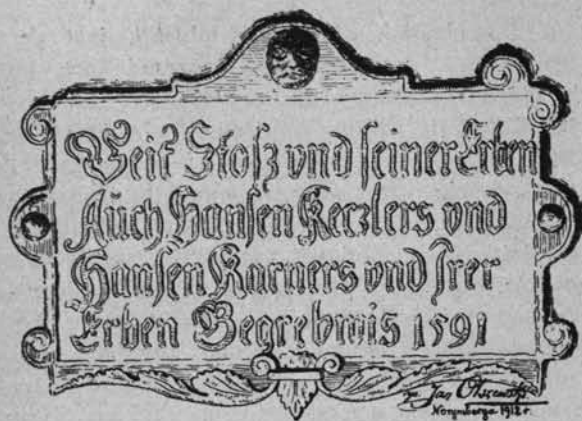 Veit Stosz vnd seiner Erben
Auch Hansen Keczlers vnd
Hansen Karners vnd Irer
Erben Begrebnis 1591
Jan
Norymberga 1912 r.